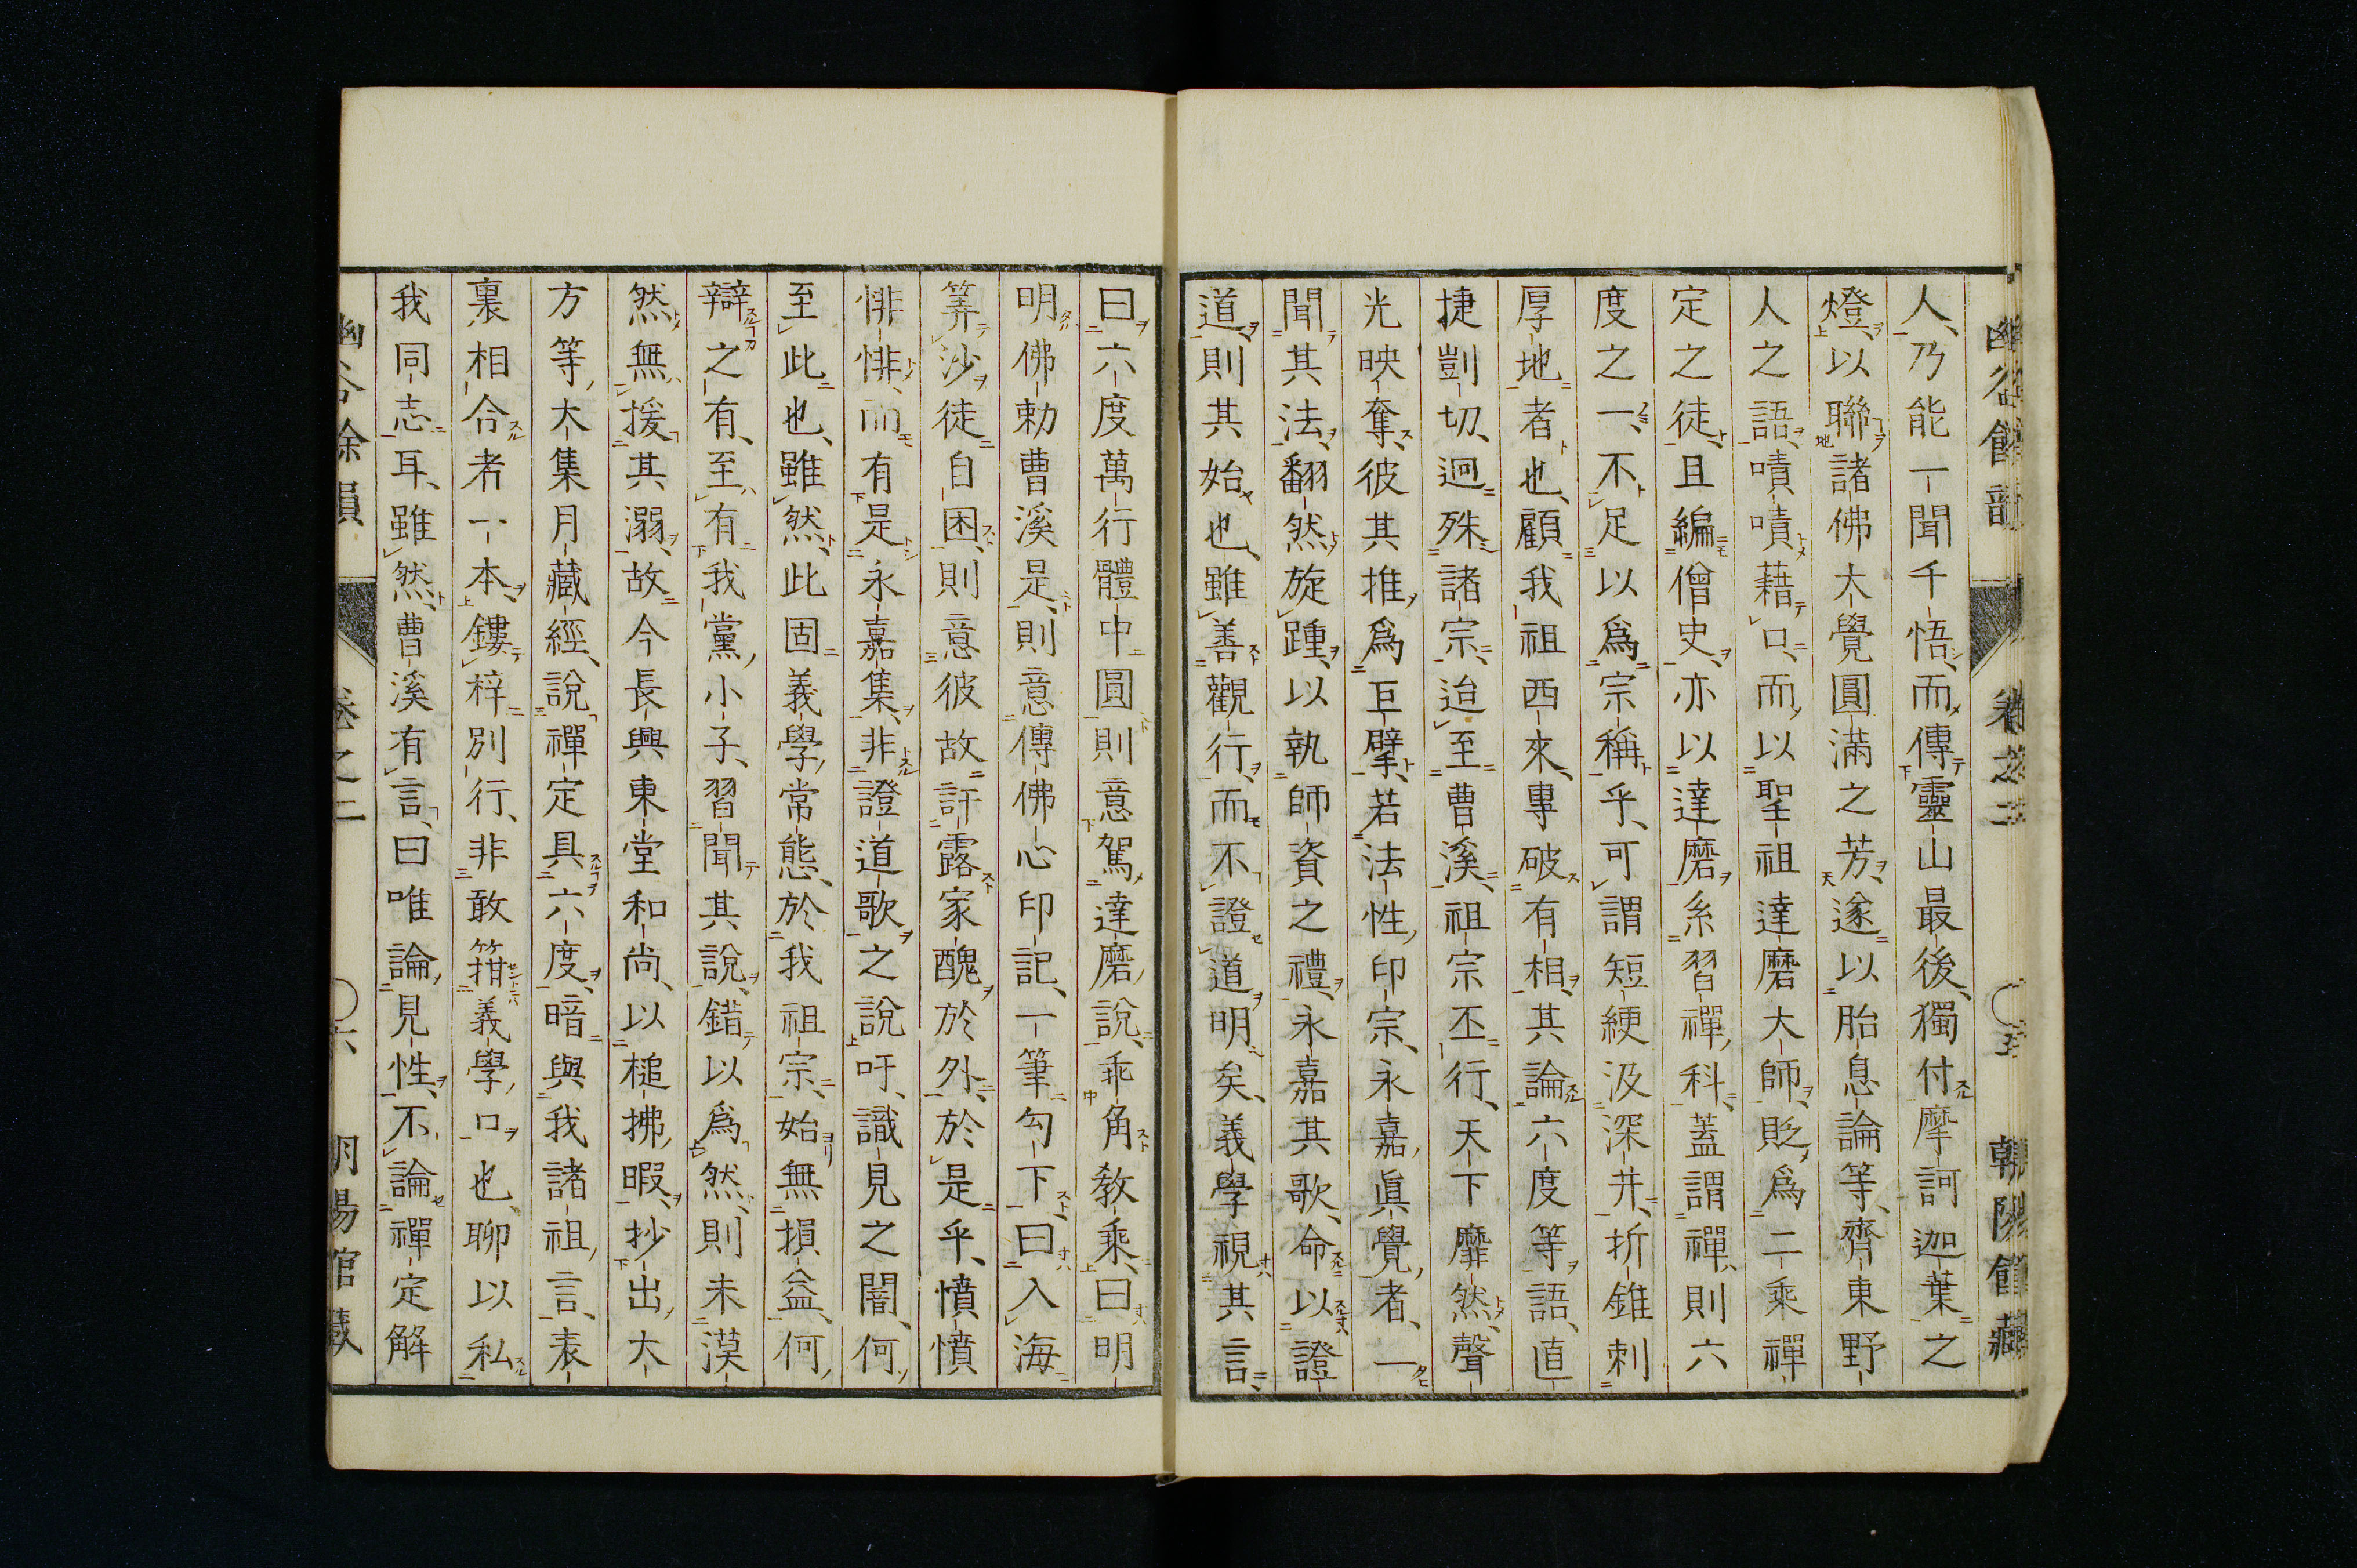 幽谷餘韻 卷之二 〇五 朝陽館藏
人乃能一聞千悟而傳靈山最後獨付摩訶迦葉之
燈以聯諸佛大覺圓滿之芳遂以胎息論等齊東野
人之語嘖嘖藉口而以聖祖達磨大師貶爲二乘禪
定之徒且編僧史亦以達磨糸習禪科蓋謂禪則六
度之一不足以爲宗稱乎可謂短綆汲深井折錐刺
厚地者也顧我祖西來專破有相其論六度等語直
捷剴切迥殊諸宗迨至曹溪祖宗丕行天下靡然聲
光映奪彼其推爲巨擘若法性印宗永嘉眞覺者一
聞其法翻然旋踵以執師資之禮永嘉其歌命以證
道則其始也雖善觀行而不證道明矣義學視其言
曰六度萬行體中圓則意駕達磨說乖角教乘曰明
明佛勅曹溪是則意傳佛心印記一筆勾下曰入海
筭沙徒自困則意彼故訐露家醜於外於是乎憤憤
悱悱而有是永嘉集非證道歌之說吁識見之闇何
至此也雖然此固義學常態於我祖宗始無損益何
辯之有至有我黨小子習聞其說錯以爲然則未漠
然無援其溺故今長興東堂和尚以槌拂暇抄出大
方等大集月藏經說禪定具六度暗與我諸祖言表
裏相合者一本鏤梓別行非敢箝義學口也聊以私
我同志耳雖然曹溪有言曰唯論見性不論禪定解
幽谷餘韻 卷之二 〇六 朝陽館藏